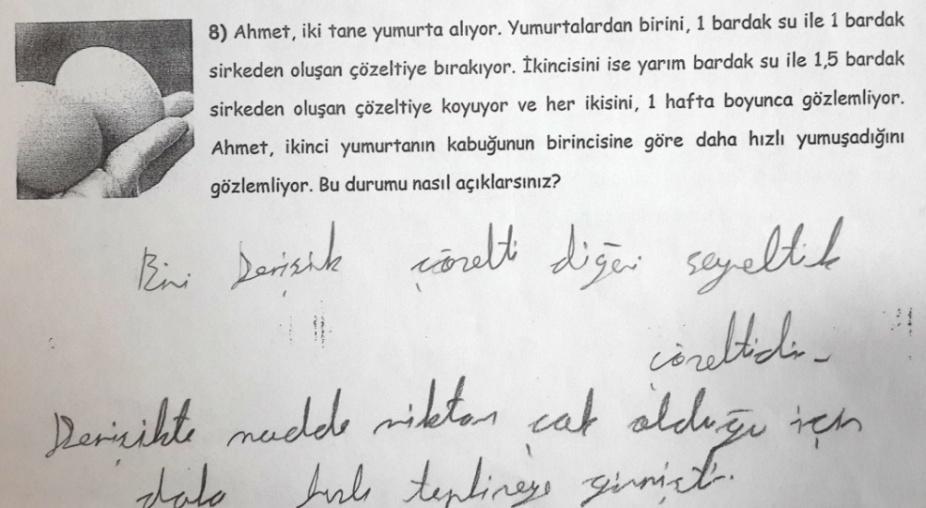 8) Ahmet, iki tane yumurta alıyor. Yumurtalardan birini, 1 bardak su ile 1 bardak
sirkeden oluşan çözeltiye bırakıyor. İkincisini ise yarım bardak su ile 1,5 bardak
sirkeden oluşan çözeltiye koyuyor ve her ikisini, 1 hafta boyunca gözlemliyor.
Ahmet, ikinci yumurtanın kabuğunun birincisine göre daha hızlı yumuşadığını
gözlemliyor. Bu durumu nasıl açıklarsınız?
Biri Derişik çözelti diğeri seyeltik
çözeltidir.
Derişikte madde miktarı çok olduğu için
daha hızlı tepkimeye girmiştir.